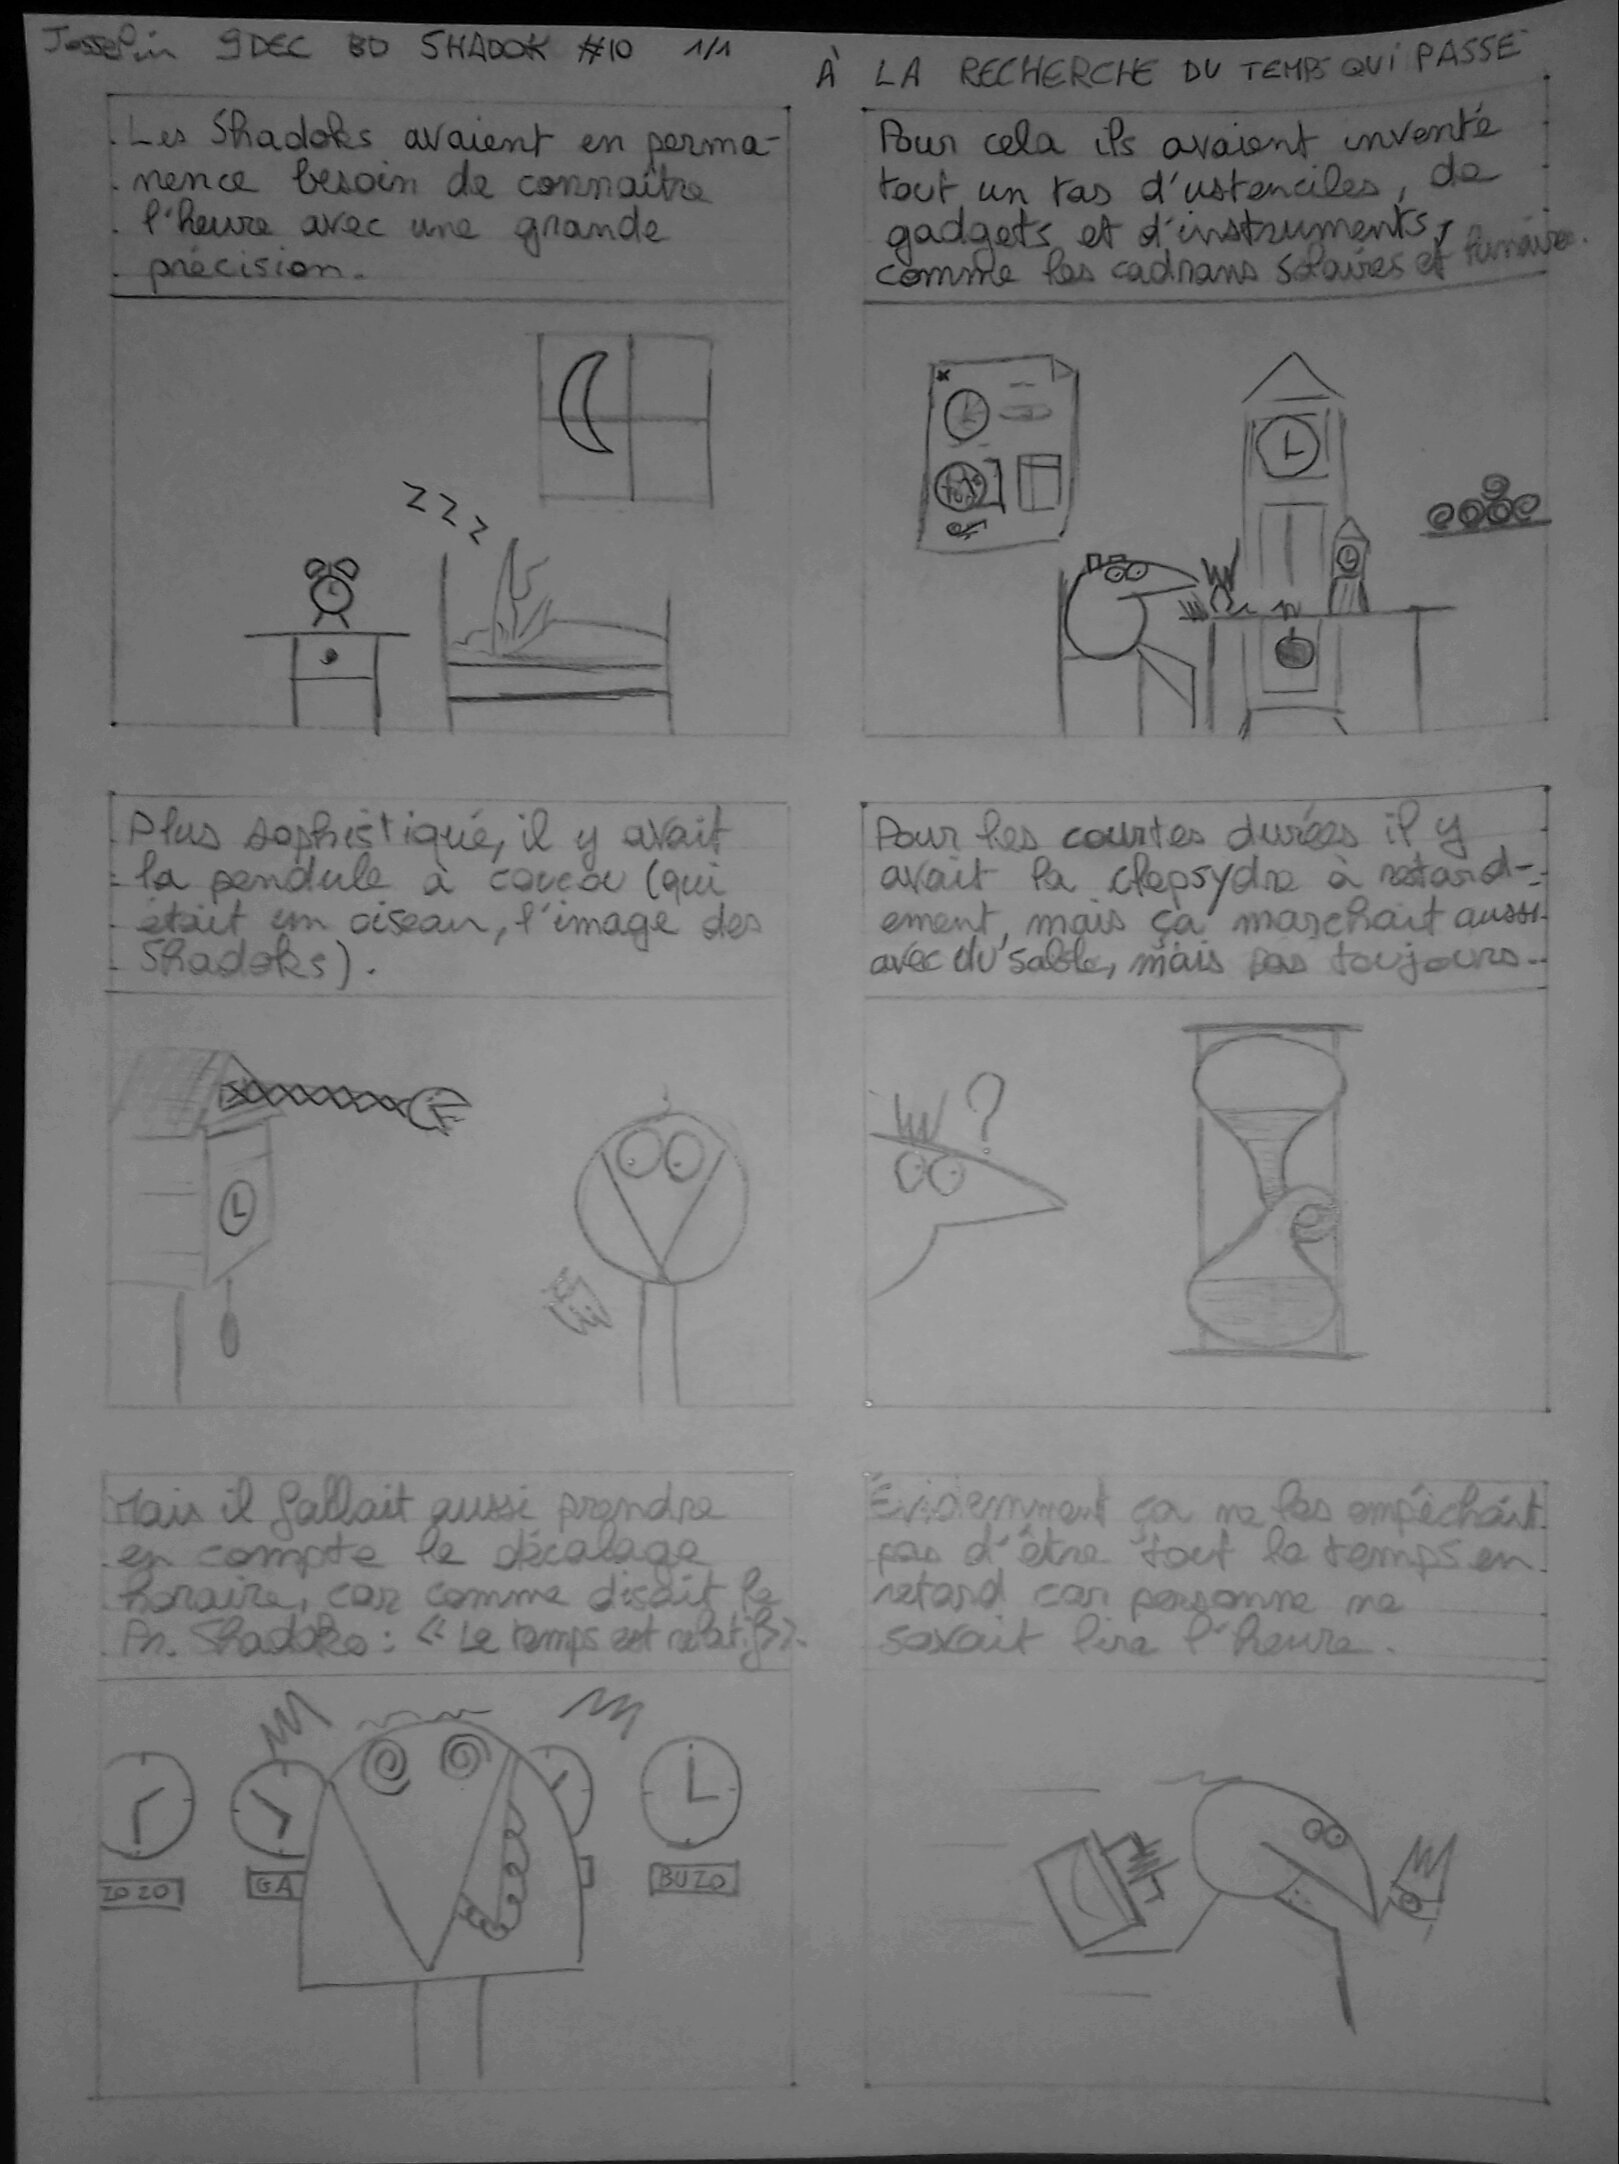 Josselin 9 DEC BD SHADOK #10 1/1
À LA RECHERCHE DU TEMPS QUI PASSE
Les Shadoks avaient en perma-
nence besoin de connaître
l'heure avec une grande
précision.
Pour cela ils avaient inventé
tout un tas d'ustenciles, de
gadgets et d'instruments,
comme les cadrans solaires et lunaires.
ZZZ
Plus sophistiqué, il y avait
la pendule à coucou (qui
était un oiseau, l'image des
Shadoks).
Pour les courtes durées il y
avait la clepsydre à retard-
ement, mais ça marchait aussi
avec du sable, mais pas toujours..
?
Mais il fallait aussi prendre
en compte le décalage
horaire, car comme disait le
Pr. Shadoko : « Le temps est relatif ».
Évidemment ça ne les empêchait
pas d'être tout le temps en
retard car personne ne
savait lire l'heure.
ZOZO
GA
BUZO